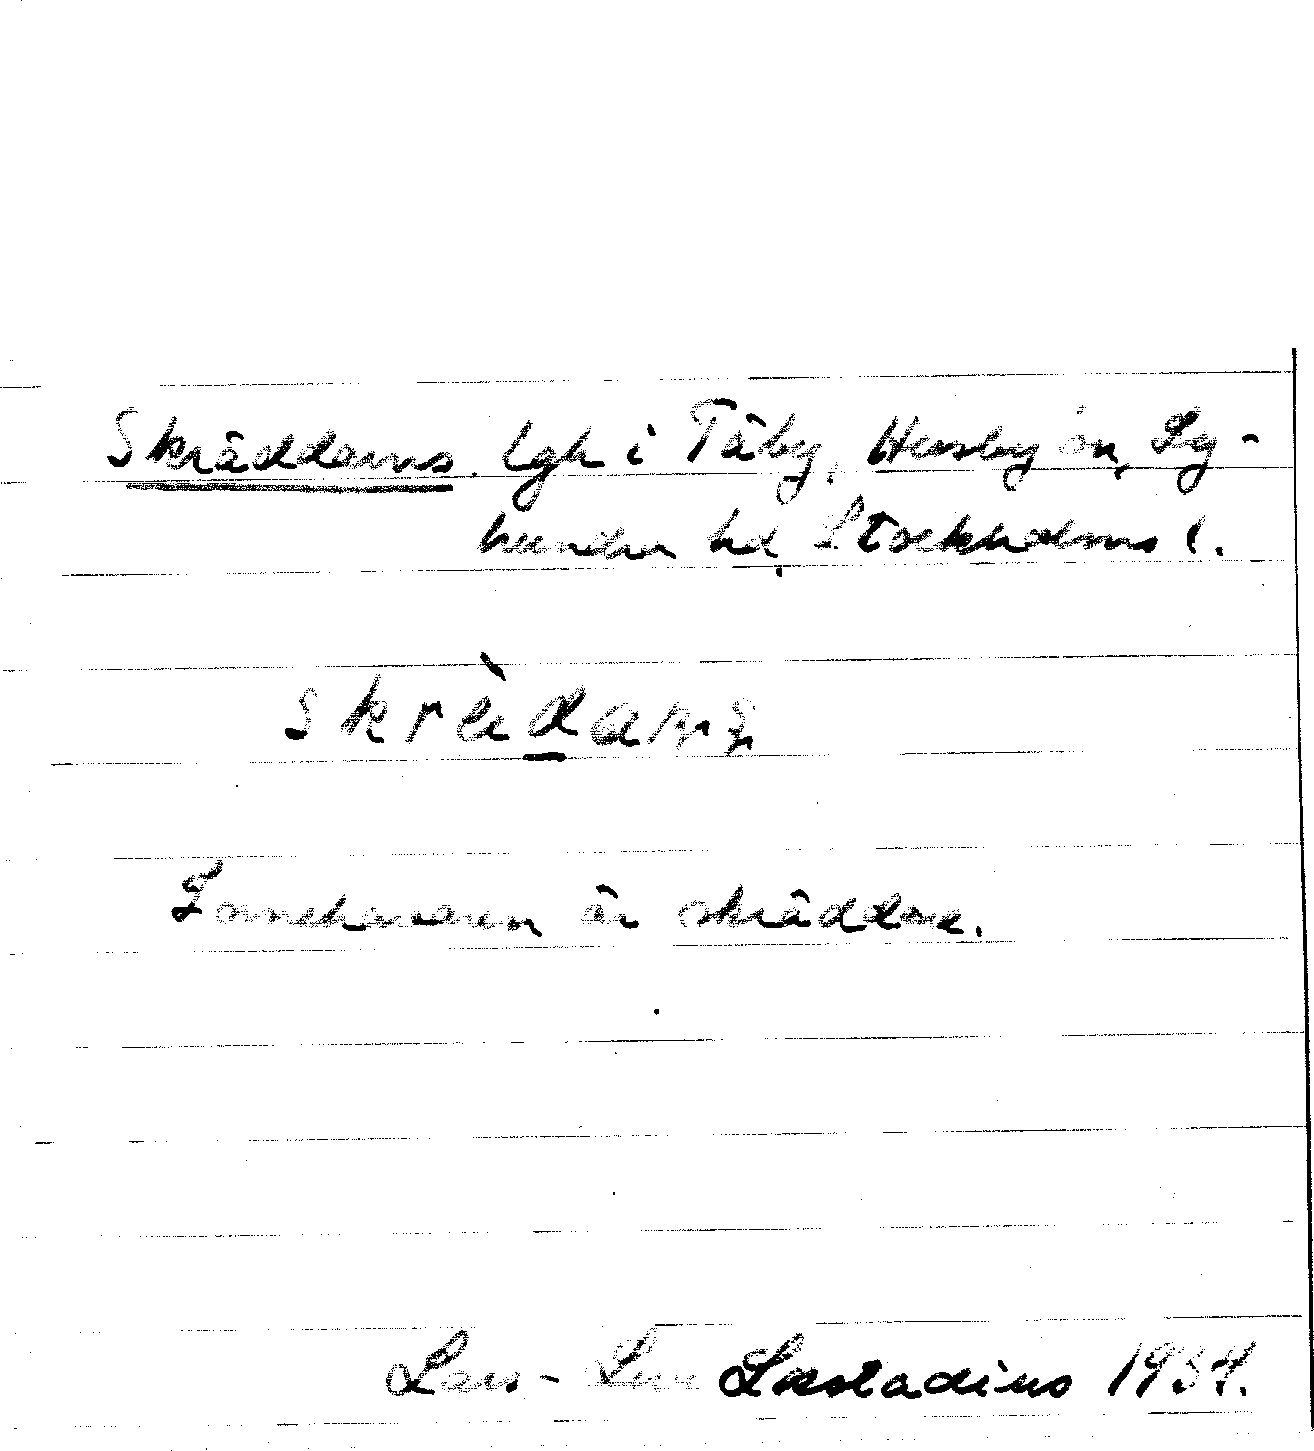 Skräddarns. lgh i Täby, Husby sn, Ly-
hundra hd, Stockholms l.
skrädarṇṣ
Innehavaren är skräddare.
Lars- Læstadius 1934.